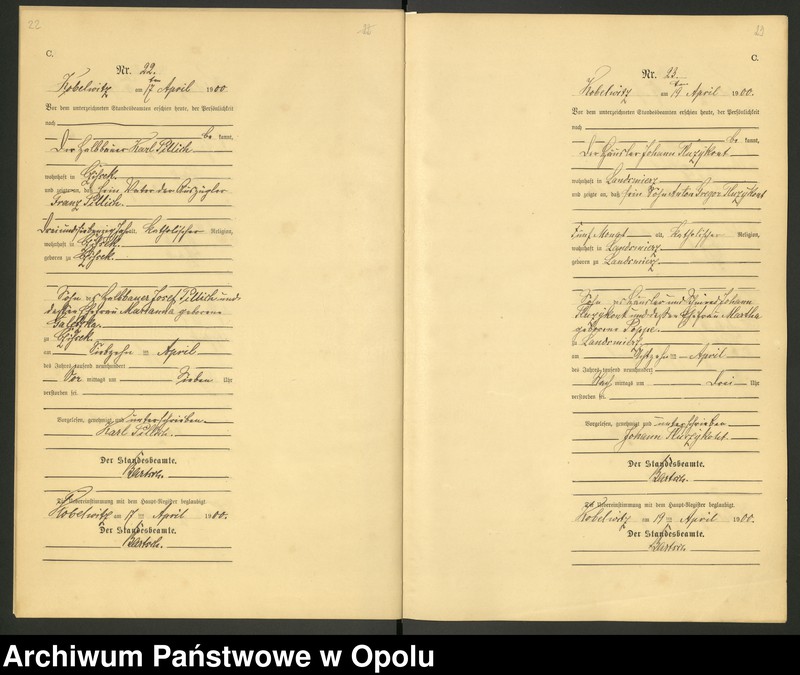 22
C.
Nr. 22.
Kobelwitz am 17ten April 1900.
Vor dem unterzeichneten Standesbeamten erschien heute, der Persönlichkeit
nach
be kannt,
Der Halbbauer Karl
wohnhaft in
und zeigte an, daß sein Vater der Auszügler
Franz
Dreiundsiebenzig Jahr alt, Katholischer Religion,
wohnhaft in
geboren zu
Sohn des Halbbauer Josef und
dessen Ehefrau Marianna geborene
zu
am Siebzehn = April
des Jahres tausend neunhundert
Vor mittags um Sieben Uhr
verstorben sei.
Vorgelesen, genehmigt und unterschrieben
Karl
Der Standesbeamte.
Die Uebereinstimmung mit dem Haupt-Register beglaubigt
Kobelwitz am 17 ten April 1900.
Der Standesbeamte.
23
C.
Nr. 23.
Kobelwitz am 19ten April 1900.
Vor dem unterzeichneten Standesbeamten erschien heute, der Persönlichkeit
nach
be kannt,
Der Häusler Johann
wohnhaft in Landsmierz
und zeigte an, daß sein Sohn Anton Gregor
Fünf Monat alt, Katholischer Religion,
wohnhaft in Landsmierz
geboren zu Landsmierz
Sohn des Häusler und Schmied Johann
und dessen Ehefrau Martha
geborene
zu Landsmierz
am Achtzehn = April
des Jahres tausend neunhundert
Nach mittags um Drei Uhr
verstorben sei.
Vorgelesen, genehmigt und unterschrieben
Johann
Der Standesbeamte.
Die Uebereinstimmung mit dem Haupt-Register beglaubigt
Kobelwitz am 19 ten April 1900.
Der Standesbeamte.
Archiwum Państwowe w Opolu